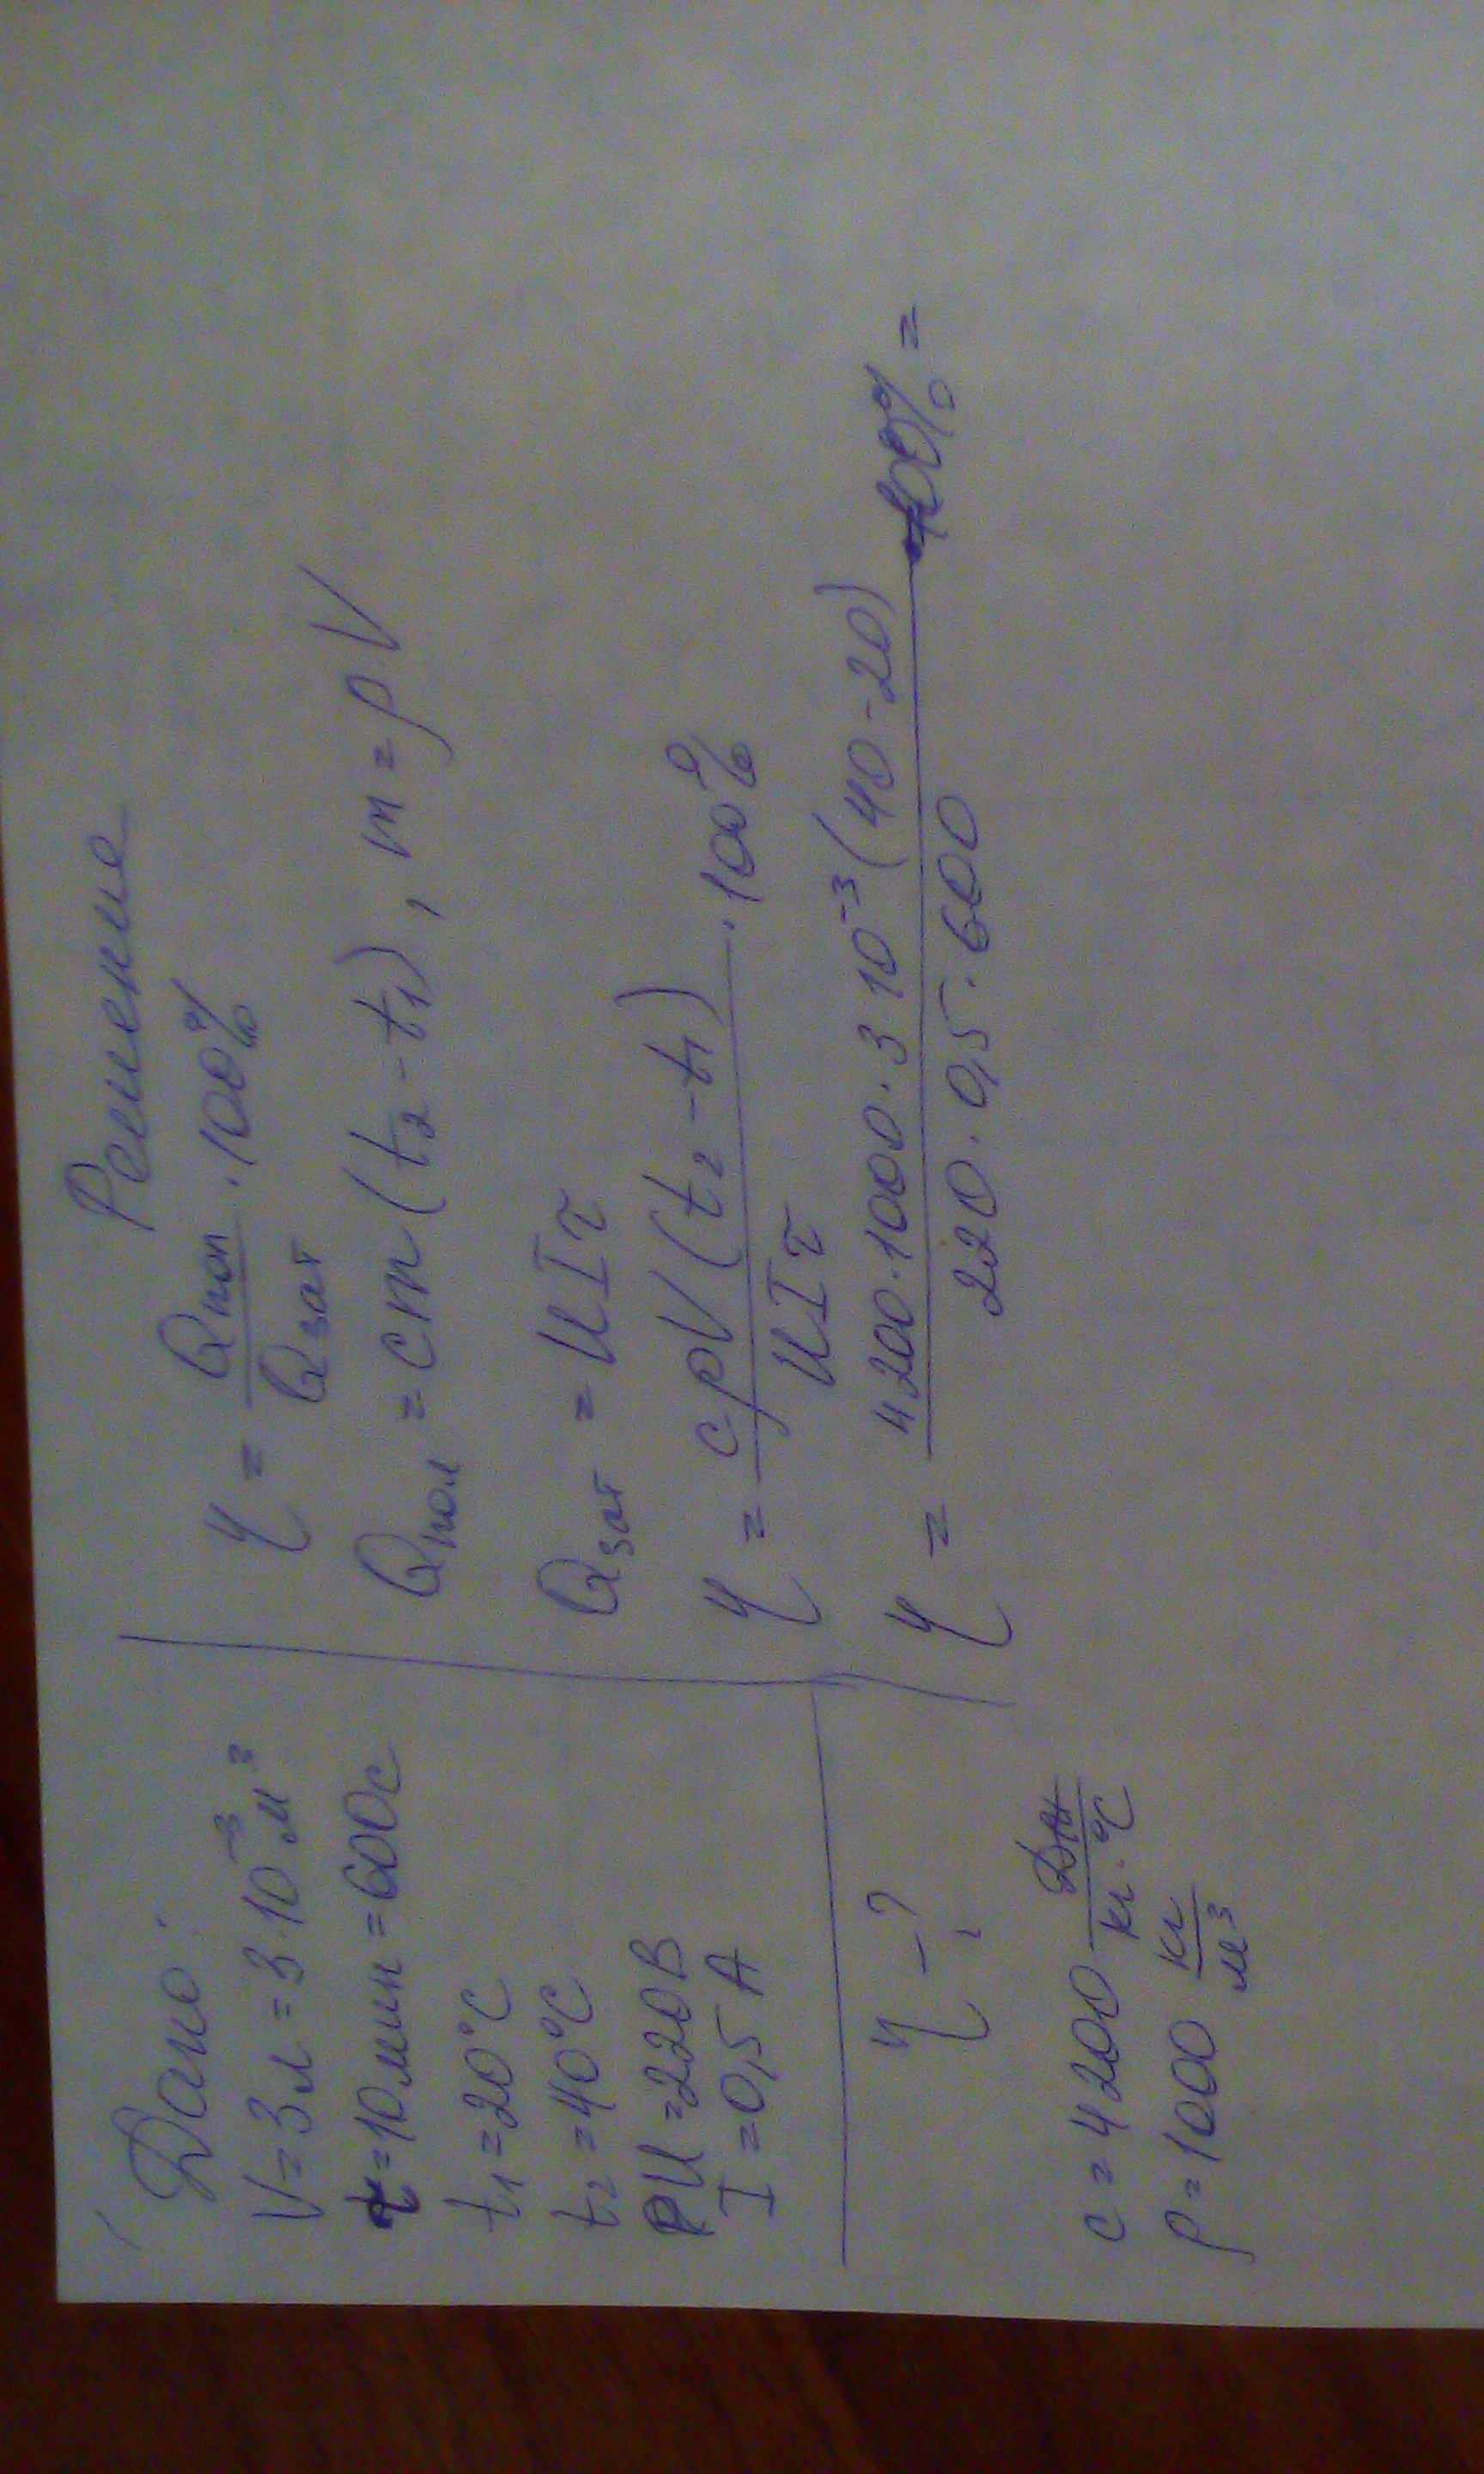 Дано:
V = 3л = 3·10⁻³ м³
τ = 10 мин = 600с
t₁ = 20°C
t₂ = 40°C
U = 220В
I = 0,5 А
η - ?
c = 4200 Дж/кг·°C
ρ = 1000 кг/м³
Решение
η = Qпол/Qзат · 100%
Qпол = cm(t₂ - t₁), m = ρV
Qзат = UIτ
η = cρV(t₂ - t₁)/UIτ · 100%
η = 4200·1000·3·10⁻³(40-20)/220·0,5·600 · 100% =